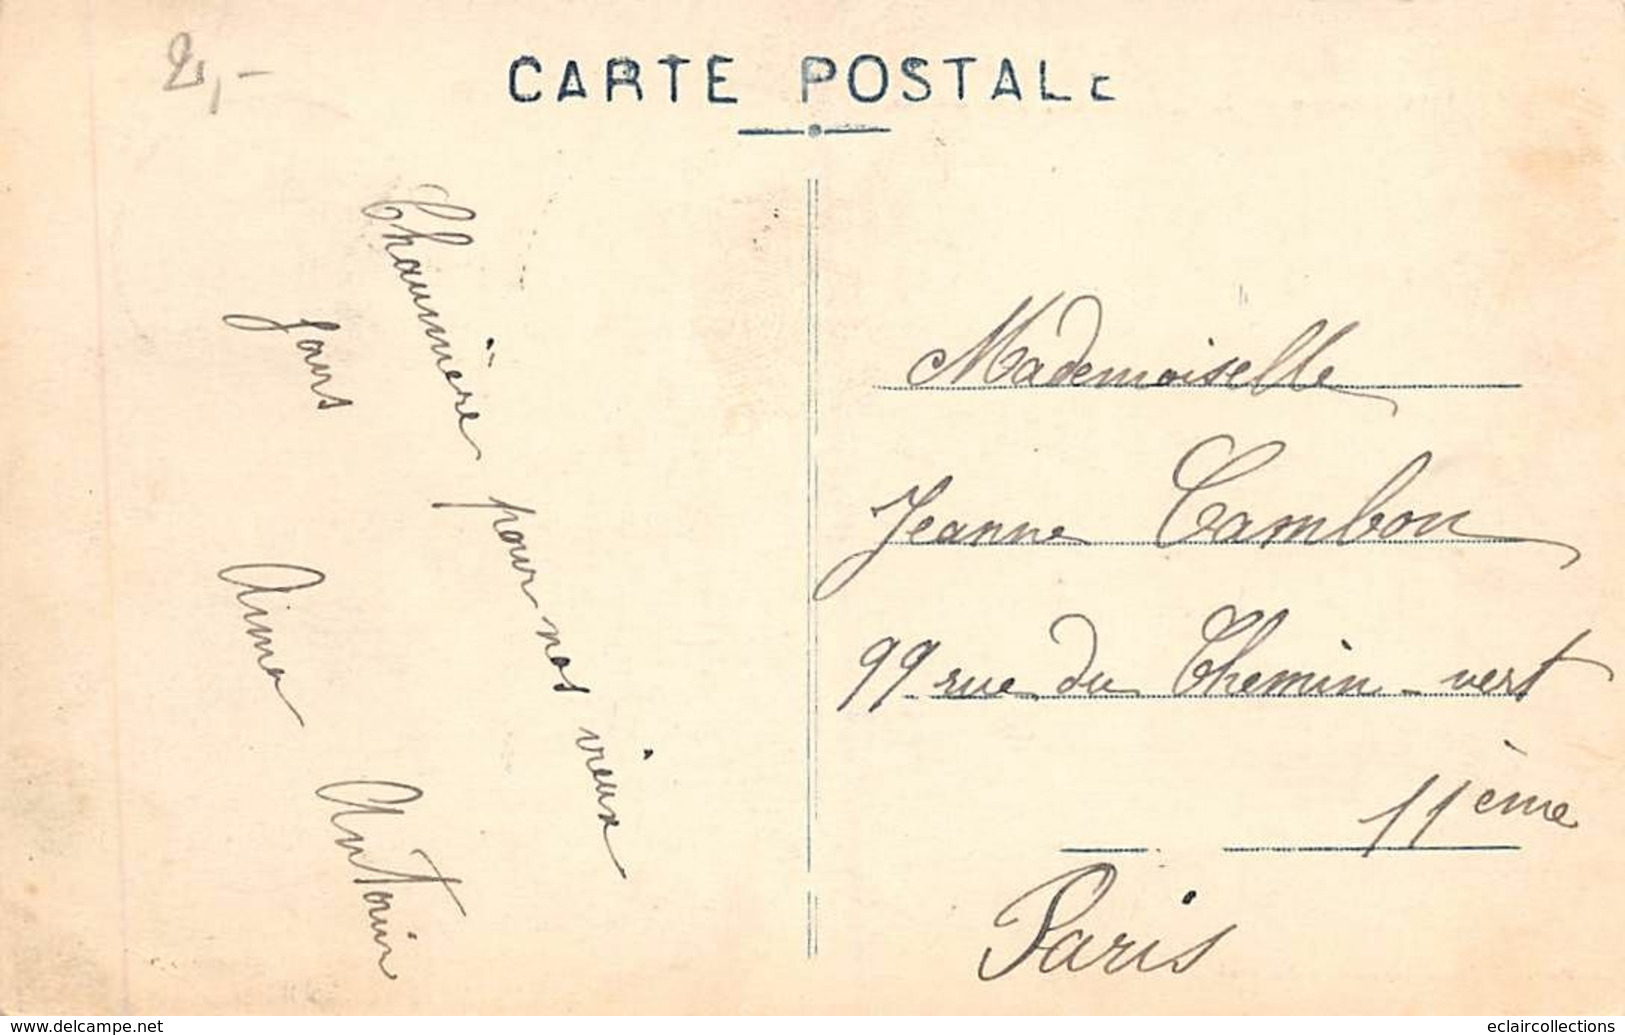 2,-
CARTE POSTALE
Chaumière pour nos vieux
jours
Aimer Antonin
Mademoiselle
Jeanne Cambon
99 rue du Chemin-vert
11ème
Paris
www.delcampe.net
eclaircollections